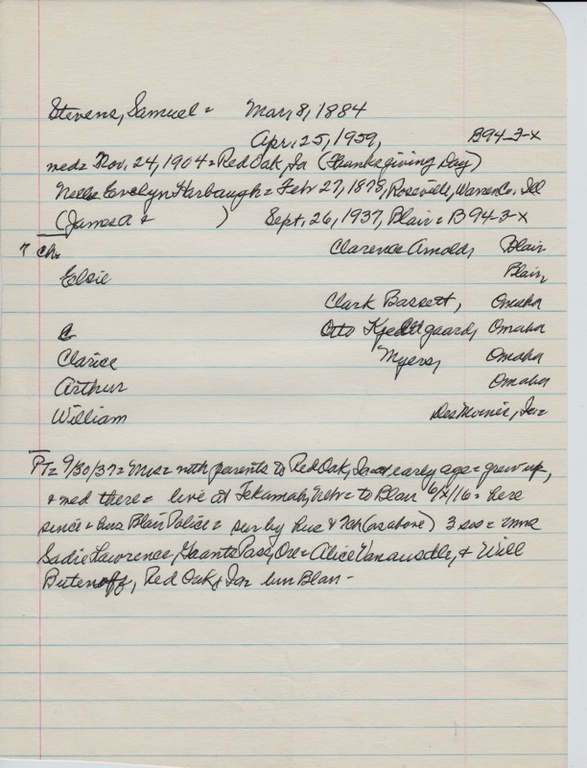 Stevens, Samuel = Mar, 8, 1884
Apr, 25, 1959, B94-3-X
med= Nov. 24, 1904 = Red Oak, Ia (Thanksgiving Day)
Nelle Evelyn Harbaugh = Feb 27, 1878, Roseville, Warren Co. Ill
(James A + ) Sept, 26, 1937, Blair = B94-3-X
7 ch= Clarence Arnold, Blair
Elsie Blair
Clark Bassett, Omaha
Otto Kjeldgaard, Omaha
Clarice Myers, Omaha
Arthur Omaha
William Des Moines, Ia=
PT= 9/30/37= Mrs= with parents to Red Oak, Ia= at early age= grew up,
+ med there= live at Tekamah, Nebr= to Blair 6/ /16= here
since= hus Blair Police= sur by hus & 7ch (as above) 3 sos= mms
Sadie Lawrence, Grants Pass, Ore= Alice & Will
Red Oak, Ia= bur Blair -